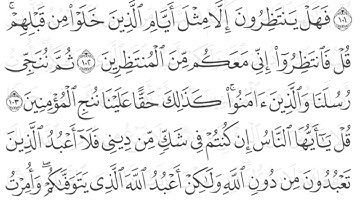 ١٠١ فَهَلْ يَنتَظِرُونَ إِلَّا مِثْلَ أَيَّامِ الَّذِينَ خَلَوْا مِن قَبْلِهِمْ ۚ
قُلْ فَانتَظِرُوا إِنِّي مَعَكُم مِّنَ الْمُنتَظِرِينَ ١٠٢ ثُمَّ نُنَجِّي
رُسُلَنَا وَالَّذِينَ ءَامَنُوا ۚ كَذَٰلِكَ حَقًّا عَلَيْنَا نُنجِ الْمُؤْمِنِينَ ١٠٣
قُلْ يَٰأَيُّهَا النَّاسُ إِن كُنتُمْ فِي شَكٍّ مِّن دِينِي فَلَا أَعْبُدُ الَّذِينَ
تَعْبُدُونَ مِن دُونِ اللَّهِ وَلَٰكِنْ أَعْبُدُ اللَّهَ الَّذِي يَتَوَفَّىٰكُمْ ۖ وَأُمِرْتُ